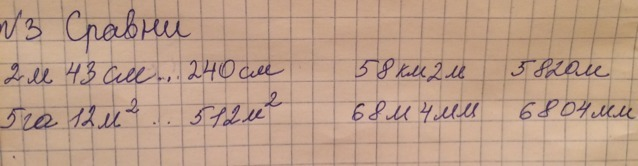 №3 Сравни
2м 43 см... 240 см 58 км 2м 5820м
5га 12м² .. 512м² 68м 4мм 6804мм